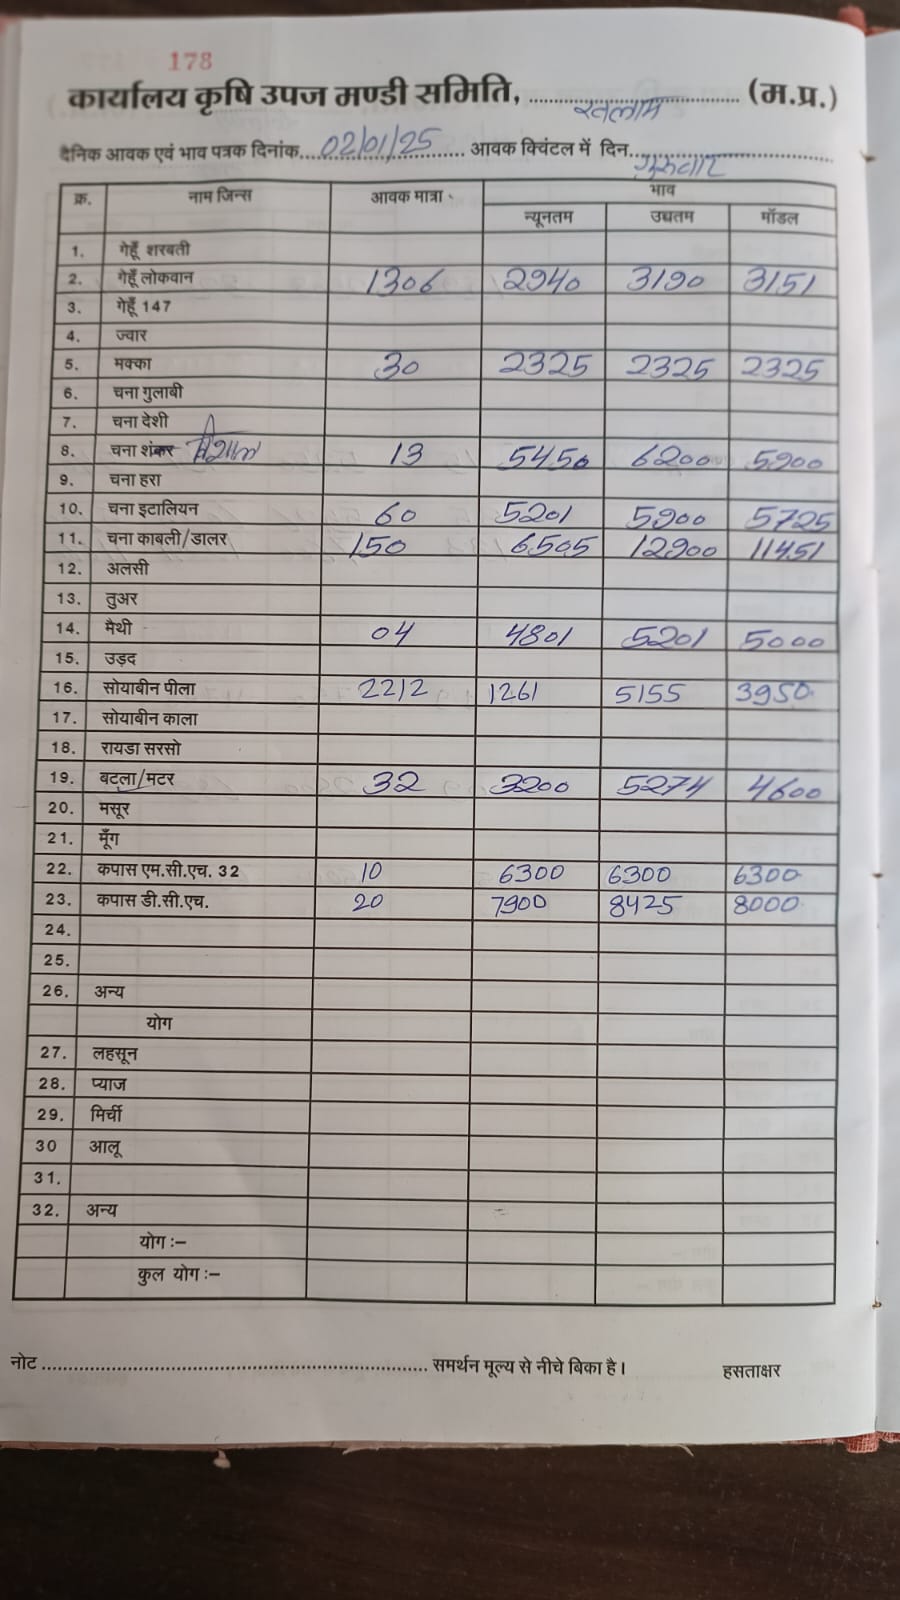 178
कार्यालय कृषि उपज मण्डी समिति, रतलाम (म.प्र.)
दैनिक आवक एवं भाव पत्रक दिनांक 02/01/25 आवक क्विंटल में दिन गुरुवार
क्र. नाम जिन्स आवक मात्रा भाव
न्यूनतम उच्चतम मॉडल
1. गेहूँ शरबती
2. गेहूँ लोकवान 1306 2940 3190 3151
3. गेहूँ 147
4. ज्वार
5. मक्का 30 2325 2325 2325
6. चना गुलाबी
7. चना देशी
8. चना शंकर विशाल 13 5450 6200 5900
9. चना हरा
10. चना इटालियन 60 5201 5900 5725
11. चना काबली/डालर 150 6505 12900 11451
12. अलसी
13. तुअर
14. मैथी 04 4801 5201 5000
15. उड़द
16. सोयाबीन पीला 2212 1261 5155 3950
17. सोयाबीन काला
18. रायडा सरसो
19. बटला/मटर 32 3200 5274 4600
20. मसूर
21. मूँग
22. कपास एम.सी.एच. 32 10 6300 6300 6300
23. कपास डी.सी.एच. 20 7900 8425 8000
24.
25.
26. अन्य
योग
27. लहसून
28. प्याज
29. मिर्ची
30 आलू
31.
32. अन्य
योग :–
कुल योग :–
नोट समर्थन मूल्य से नीचे बिका है। हसताक्षर